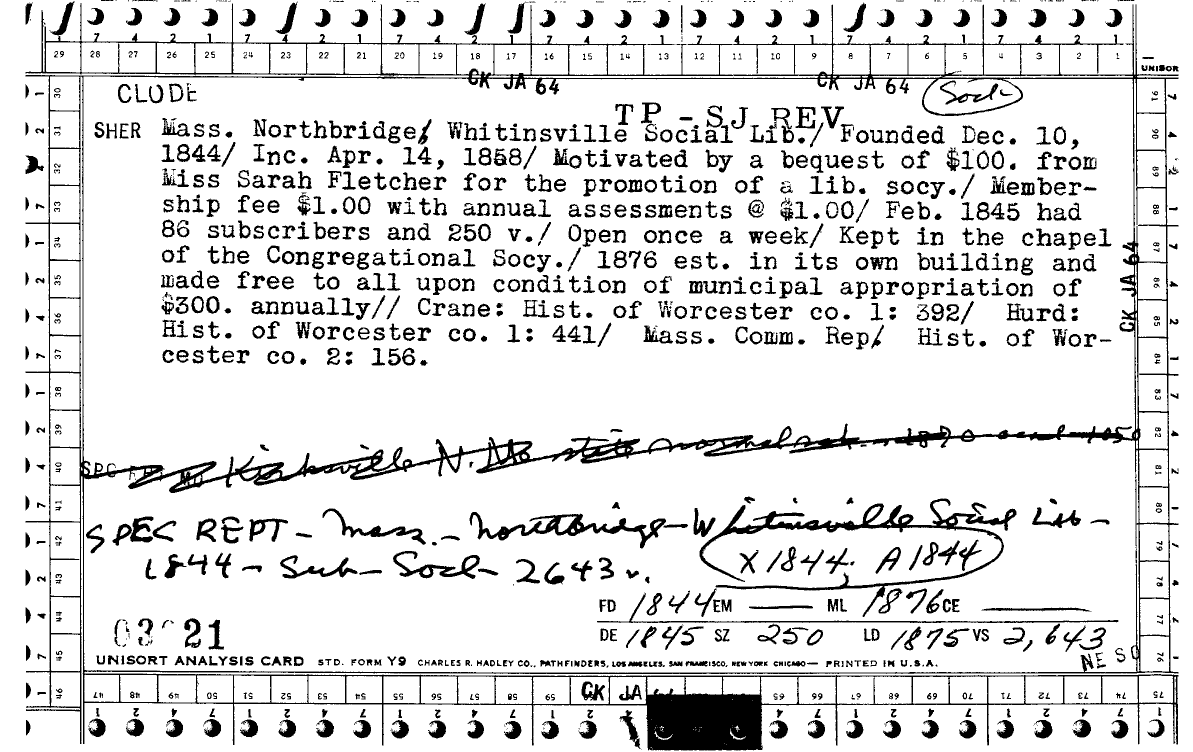 7 4 2 1 7 4 2 1 7 4 2 1 7 4 2 1 7 4 2 1 7 4 2 1 7 4 2 1
29 28 27 26 25 24 23 22 21 20 19 18 17 16 15 14 13 12 11 10 9 8 7 6 5 4 3 2 1
UNISOR
CK JA 64 CK JA 64 Socl
CLODE
TP - SJ REV
SHER Mass. Northbridge/ Whitinsville Social Lib./ Founded Dec. 10,
1844/ Inc. Apr. 14, 1858/ Motivated by a bequest of $100. from
Miss Sarah Fletcher for the promotion of a lib. socy./ Member-
ship fee $1.00 with annual assessments @ $1.00/ Feb. 1845 had
86 subscribers and 250 v./ Open once a week/ Kept in the chapel
of the Congregational Socy./ 1876 est. in its own building and
made free to all upon condition of municipal appropriation of
$300. annually// Crane: Hist. of Worcester co. 1: 392/ Hurd:
Hist. of Worcester co. 1: 441/ Mass. Comm. Rep/ Hist. of Wor-
cester co. 2: 156.
CK JA 64
Kirksville N. Mo state normal sch
SPEC REPT - Mass. - Northbridge - Whitinsville Social Lib -
1844 - Sub - Socl - 2643 v.
X 1844; A 1844
FD 1844 EM — ML 1876 CE —
DE 1845 SZ 250 LD 1875 VS 2,643
21
NE SO
UNISORT ANALYSIS CARD STD. FORM Y9 CHARLES R. HADLEY CO., PATHFINDERS, LOS ANGELES, SAN FRANCISCO, NEW YORK CHICAGO — PRINTED IN U.S.A.
46 47 48 49 50 51 52 53 54 55 56 57 58 59 65 66 67 68 69 70 71 72 73 74 75
CK JA